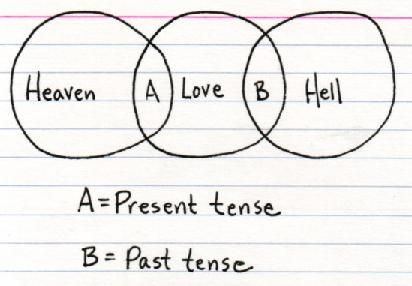 Heaven A Love B Hell
A=Present tense
B= Past tense